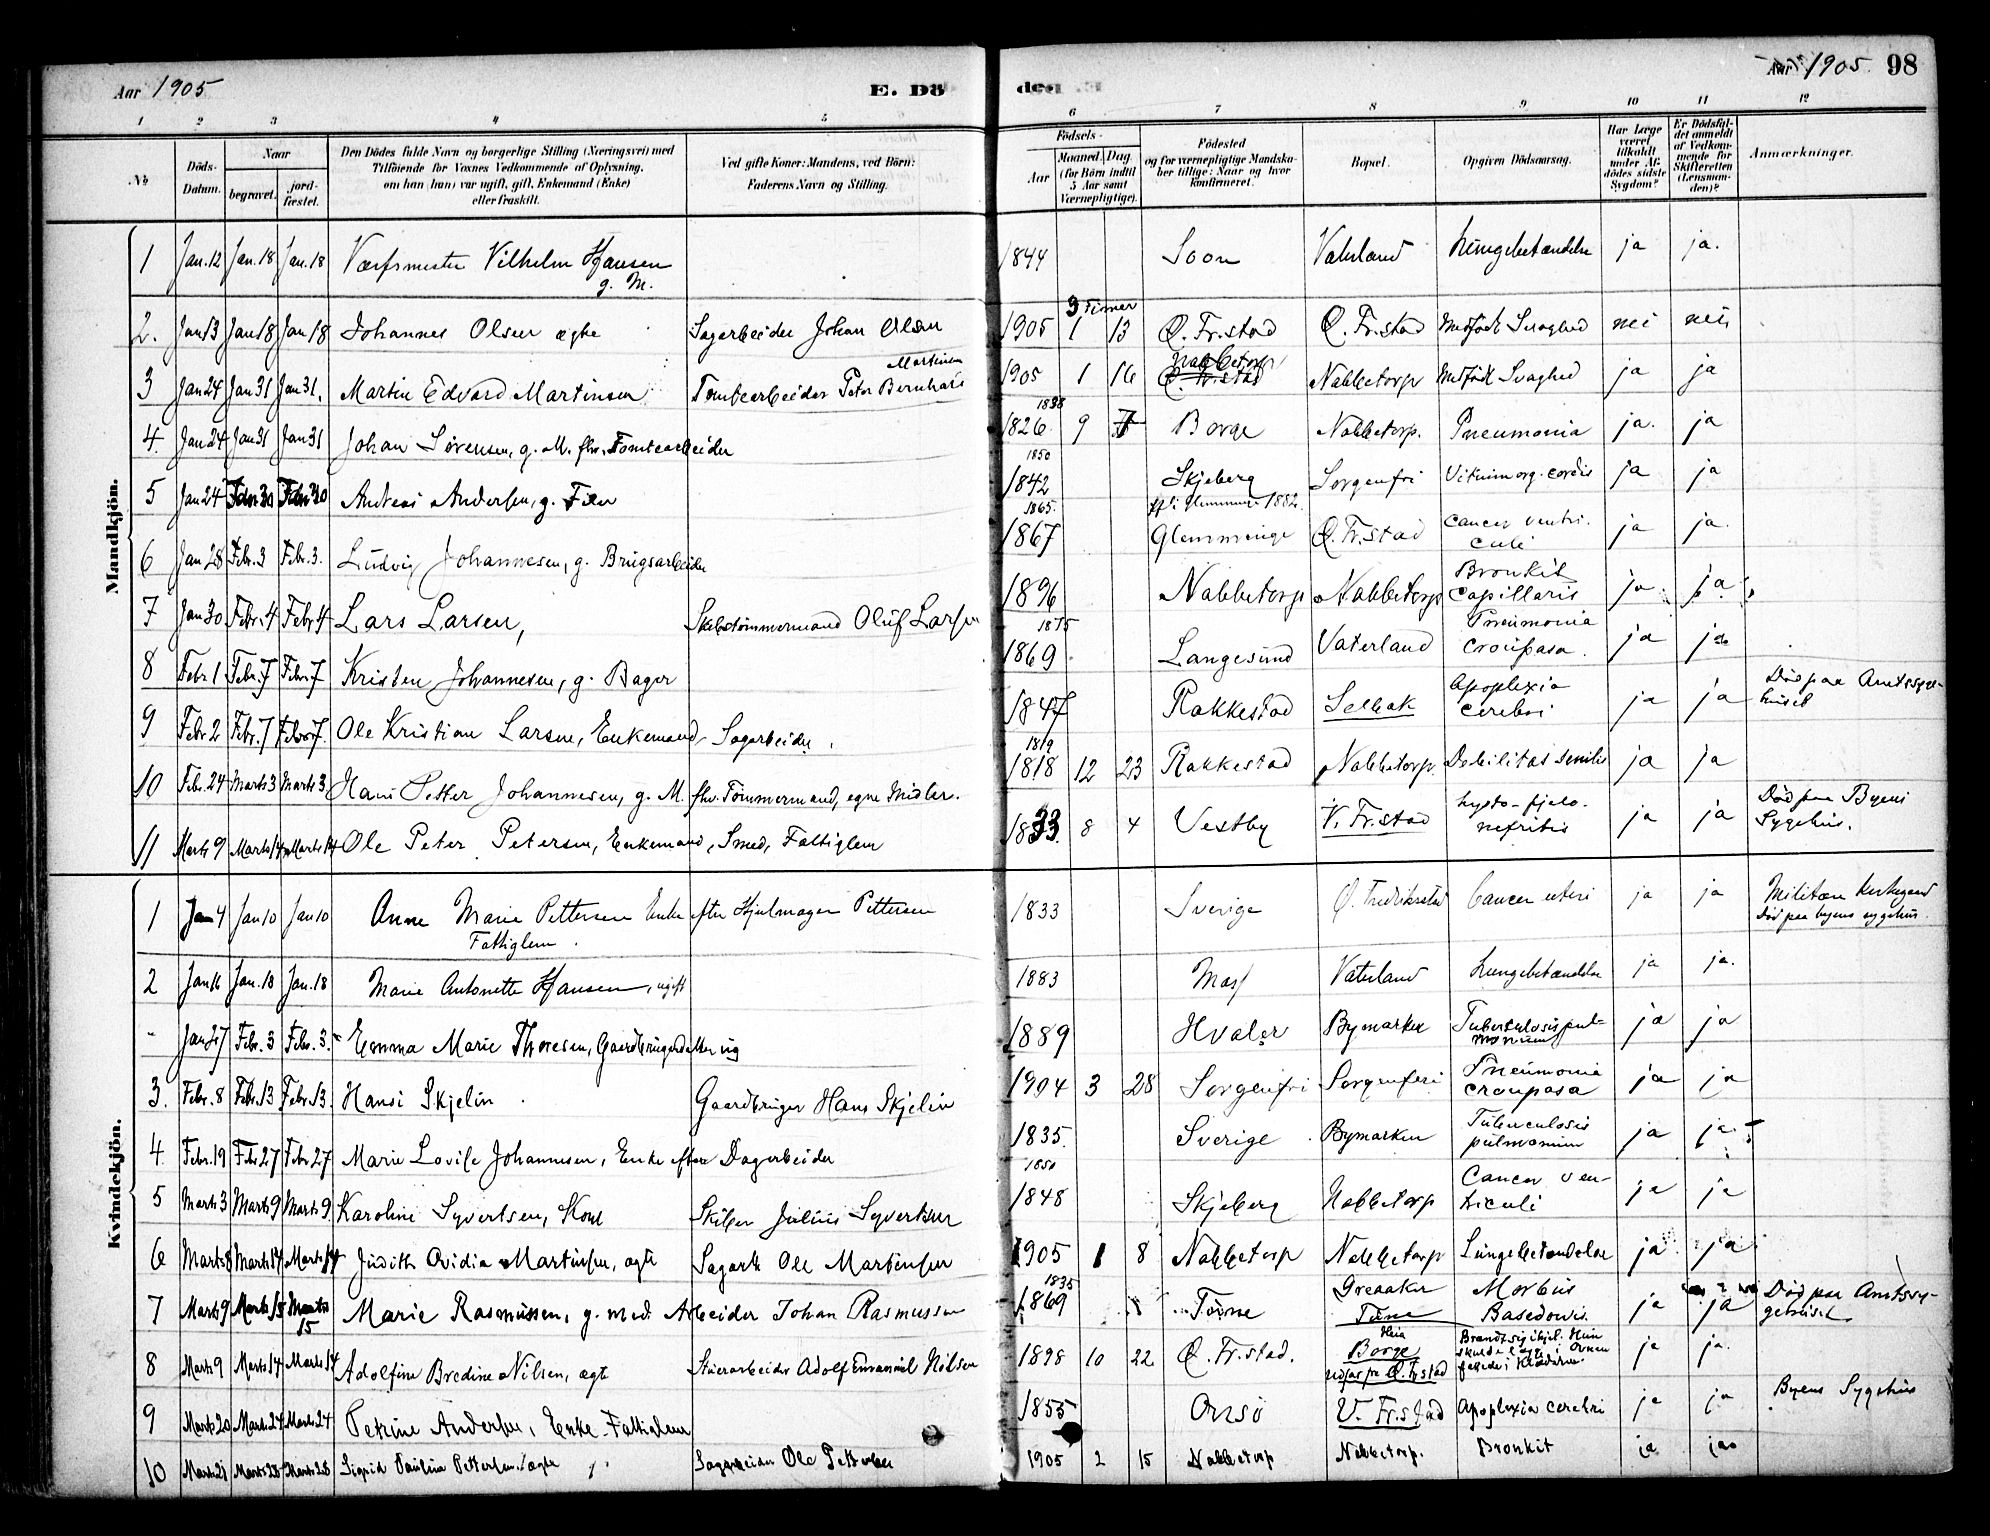 Aar 1905
E. Dö
den. E.
Aar 1905. 98
1 2 3 4 5 6 7 8 9 10 11 12
No
Döds-Datum.
Naar
begravet.
jord-fæstet.
Den Dödes fulde Navn og borgerlige Stilling (Næringsvei) med
Tilföiende for Voxnes Vedkommende af Oplysning,
om han (hun) var ugift, gift, Enkemand (Enke)
eller fraskilt.
Ved gifte Koner: Mandens, ved Börn:
Faderens Navn og Stilling.
Födsels-
Aar
Maaned. Dag.
(for Börn indtil
5 Aar samt
Værnepligtige).
Födested
og for værnepligtige Mandska-
ber tillige: Naar og hvor
konfirmeret.
Bopæl.
Opgiven Dödsaarsag.
Har Læge
været
tilkaldt
under Af-
dödes sidste
Sygdom?
Er Dödsfal-
det anmeldt
af Vedkom-
mende for
Skifteretten
(Lensman-
den)?
Anmærkninger.
Mandkjön.
1 Jan. 12 Jan. 18 Jan. 18 Værfsmester Vilhelm Hansen g. M. 1844 Soon Vaterland Lungebetændelse ja ja.
2. Jan 13 Jan 18 Jan 18 Johannes Olsen ægte Sagarbeider Johan Olsen 1905 1 13 3 timer Ø. Fr.stad Ø. Fr.stad Medfødt Svaghed nei nei
3 Jan 24 Jan 31 Jan 31. Martin Edvard Martinsen Tomtearbeider Peter Bernhard Martinsen 1905 1 16 Nabbetorp Ø. Fr.stad Nabbetorp Medfødt Svaghed ja ja
4. Jan 24 Jan 31 Jan 31 Johan Sørensen, g. M. fhv. Tomtearbeider 1838 1826 9 Borge Nabbetorp. Pneumonia ja. ja
5 Jan 24 Febr 30 Febr 30 Andreas Andersen, g. 1850 1842 Skjeberg Sorgenfri Vitium org. cordis ja ja
6 Jan 28 Febr. 3 Febr. 3. Ludvig Johannesen, g. Brugsarbeider 1865. 1867 Glemminge 1882. Ø. Fr.stad Cancer ventri-culi ja ja
7 Jan 30 Febr. 4 Febr 4 Lars Larsen, Skibstømmermand Oluf Larsen 1896 Nabbetorp Nabbetorp Bronkit capillaris ja ja
8 Febr 1 Febr. 7 Febr 7 Kristen Johannesen, g. Bager 1875 1869 Langesund Vaterland Pneumonia croupøsa. ja ja
9 Febr 2 Febr. 7 Febr 7. Ole Kristian Larsen, Enkemand, Sagarbeider. 1847 Rakkestad Selbak Apoplexia cerebri ja ja Død paa Amtssyge-huset
10 Febr. 24 Marts 3 Marts 3. Hans Petter Johannesen, g. M. fhv. Tømmermand, egne Midler. 1819 1818 12 23 Rakkestad Nabbetorp. Debilitas senilis ja ja
11 Marts 9 Marts 14 Marts 14 Ole Peter Petersen, Enkemand, Smed, Fattiglem 1833. 8 4 Vestby V. Fr.stad nefritis ja ja Død paa Byens Sygehus.
Kvindekjön.
1 Jan 4 Jan 10 Jan 10 Anne Marie Pettersen Enke efter Hjulmager Pettersen Fattiglem. 1833 Sverige Ø. Fredrikstad Cancer uteri ja ja Militær Kirkegaard Død paa byens sygehus.
2 Jan 16 Jan. 18 Jan. 18 Marie Antonette Hansen, ugift 1883 Moss Vaterland Lungebetændelse ja ja.
- Jan 27 Febr. 3 Febr. 3. Emma Marie Thoresen, Gaardbrugerdatter ug 1889 Hvaler Bymarken Tuberculosis pul-monum ja ja
3. Febr. 8 Febr. 13 Febr. 13. Hansi Skjelin Gaardbruger Hans Skjelin 1904 3 28 Sorgenfri Sorgenfri Pneumonia croupøsa ja ja
4 Febr. 19 Febr 27 Febr 27 Marie Lovise Johannesen, Enke efter Dagarbeider 1835. Sverige Bymarken Tuberculosis pulmonum ja ja
5 Marts 3 Marts 9 Marts 9 Karoline Syvertsen, Kone Skiber Julius Syvertsen 1850 1848 Skjeberg Nabbetorp Cancer ven-triculi ja ja
6 Marts 8 Marts 14 Marts 14 Judith Ovidia Martinsen, ægte Sagarb. Ole Martinsen 1905 1 8 Nabbetorp Nabbetorp Lungebetændelse ja ja
7 Marts 9 Marts 15 Marts 15 Marie Rasmussen, g. med Arbeider Johan Rasmussen 1835 1869 Tune Greaaker Tune Morbus Basedowii ja ja Død paa Amtssy-gehuset
8 Marts 9 Marts 14 Marts 14 Adolfine Bredine Nilsen, ægte Stuerarbeider Adolf Emanuel Nilsen 1898 10 22 Ø. Fr.stad. Borge Ø. Fr.stad Brandt sig ihjel. Hun skulde lægge i Ovnen i Klæderne. ja ja.
9 Marts 20 Marts 24 Marts 24 Petrine Andersen, Enke. Fattiglem 1855 Onsø V. Fr.stad Apoplexia cerebri ja ja Byens Sygehus
10 Marts 21 Marts 28 Marts 28 Sigrid Paulina Pettersen, ægte Sagarbeider Ole Pettersen 1905 2 15 Nabbetorp Nabbetorp. Bronkit ja ja